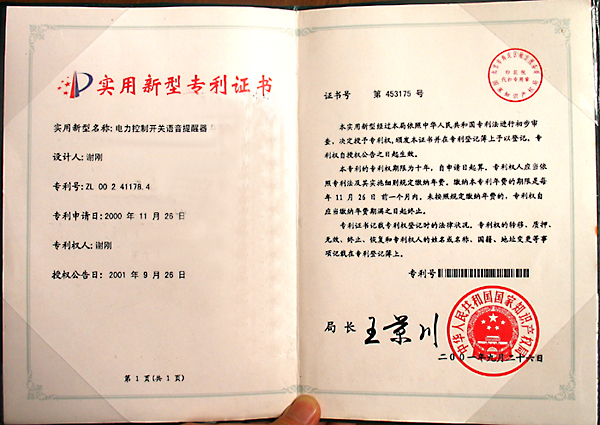 实用新型专利证书
实用新型名称:电力控制开关语音提醒器
设计人:谢刚
专利号:ZL 00 2 41178.4
专利申请日:2000 年 11 月 26 日
专利权人:谢刚
授权公告日:2001 年 9 月 26 日
第 1 页(共 1 页)
证书号 第 453175 号
本实用新型经过本局依照中华人民共和国专利法进行初步审
查,决定授予专利权,颁发本证书并在专利登记簿上予以登记。专
利权自授权公告之日起生效。
本专利的专利权期限为十年,自申请日起算。专利权人应当依
照专利法及其实施细则规定缴纳年费。缴纳本专利年费的期限是每
年 11 月 26 日 前一个月内。未按照规定缴纳年费的,专利权自
应当缴纳年费期满之日起终止。
专利证书记载专利权登记时的法律状况。专利权的转移、质押、
无效、终止、恢复和专利权人的姓名或名称、国籍、地址变更等事
项记载在专利登记簿上。
专利号
局长 王景川
中华人民共和国国家知识产权局
二00一年九月二十六日